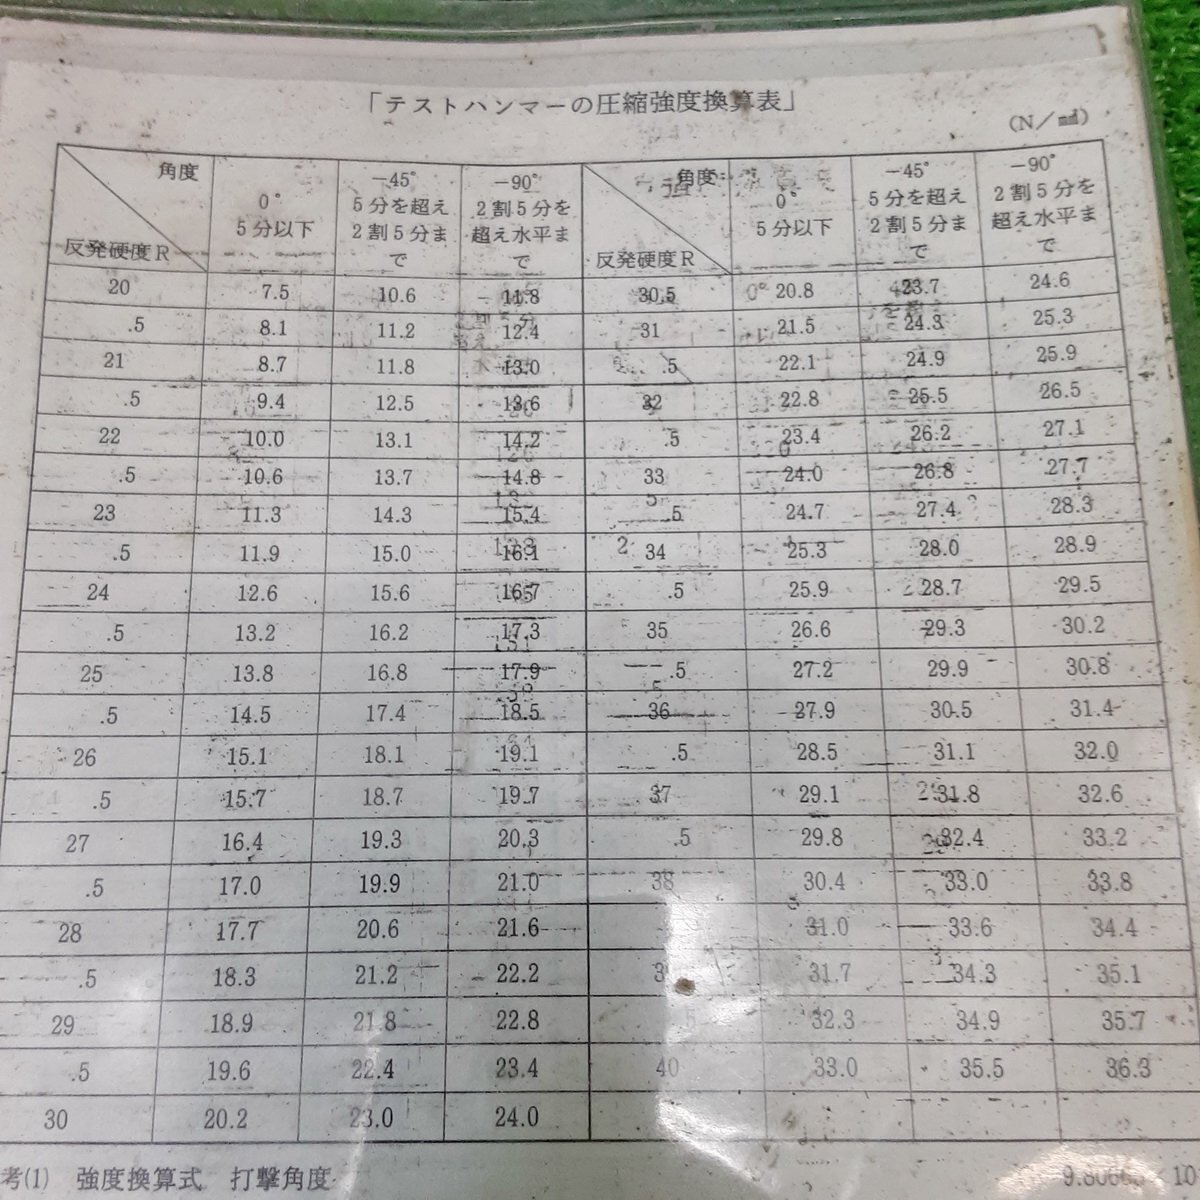 「テストハンマーの圧縮強度換算表」
(N/㎟)
角度 反発硬度R 0° 5分以下 −45° 5分を超え2割5分まで −90° 2割5分を超え水平まで 角度 反発硬度R 0° 5分以下 −45° 5分を超え2割5分まで −90° 2割5分を超え水平まで
20 7.5 10.6 11.8 30.5 20.8 23.7 24.6
.5 8.1 11.2 12.4 31 21.5 24.3 25.3
21 8.7 11.8 13.0 .5 22.1 24.9 25.9
.5 9.4 12.5 13.6 32 22.8 25.5 26.5
22 10.0 13.1 14.2 .5 23.4 26.2 27.1
.5 10.6 13.7 14.8 33 24.0 26.8 27.7
23 11.3 14.3 15.4 .5 24.7 27.4 28.3
.5 11.9 15.0 16.1 34 25.3 28.0 28.9
24 12.6 15.6 16.7 .5 25.9 28.7 29.5
.5 13.2 16.2 17.3 35 26.6 29.3 30.2
25 13.8 16.8 17.9 .5 27.2 29.9 30.8
.5 14.5 17.4 18.5 36 27.9 30.5 31.4
26 15.1 18.1 19.1 .5 28.5 31.1 32.0
.5 15.7 18.7 19.7 37 29.1 31.8 32.6
27 16.4 19.3 20.3 .5 29.8 32.4 33.2
.5 17.0 19.9 21.0 38 30.4 33.0 33.8
28 17.7 20.6 21.6 31.0 33.6 34.4
.5 18.3 21.2 22.2 31.7 34.3 35.1
29 18.9 21.8 22.8 32.3 34.9 35.7
.5 19.6 22.4 23.4 40 33.0 35.5 36.3
30 20.2 23.0 24.0
考(1) 強度換算式 打撃角度 10